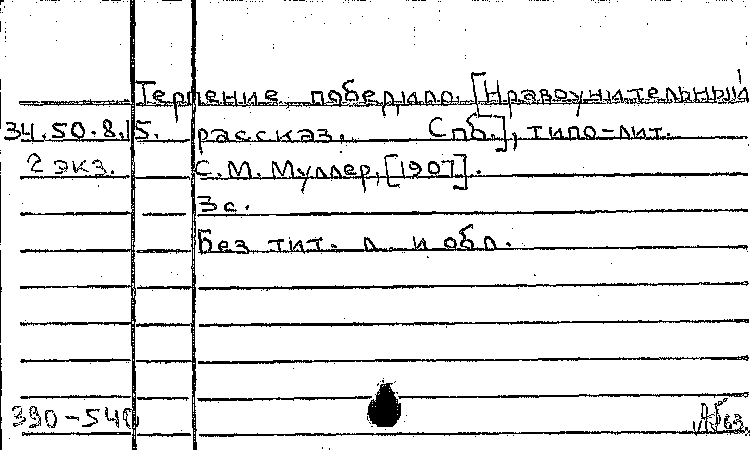 Терпение победило. [Нравоучительный
34.50.8.15. рассказ. Спб.], типо-лит.
2 экз. С. М. Муллер, [1907].
3 с.
Без тит. л. и обл.
390-540